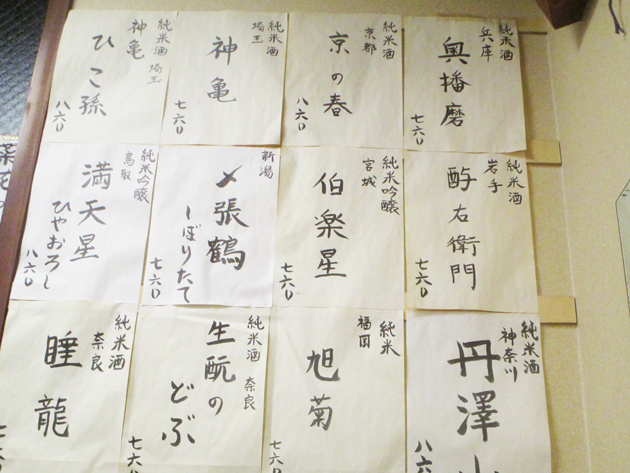 純米酒
兵庫
奥播磨
七六〇
純米酒
京都
京の春
八六〇
純米酒
埼玉
神亀
七六〇
純米酒 埼玉
神亀
ひこ孫
八六〇
純米酒
岩手
酉与右衛門
七六〇
純米吟醸
宮城
伯楽星
七六〇
新潟
〆張鶴
しぼりたて
七六〇
純米吟醸
鳥取
満天星
ひやおろし
八六〇
純米酒
神奈川
丹澤山
八六
純米
福岡
旭菊
七六〇
純米酒 奈良
生酛の
どぶ
七六〇
純米酒
奈良
睡龍
七六